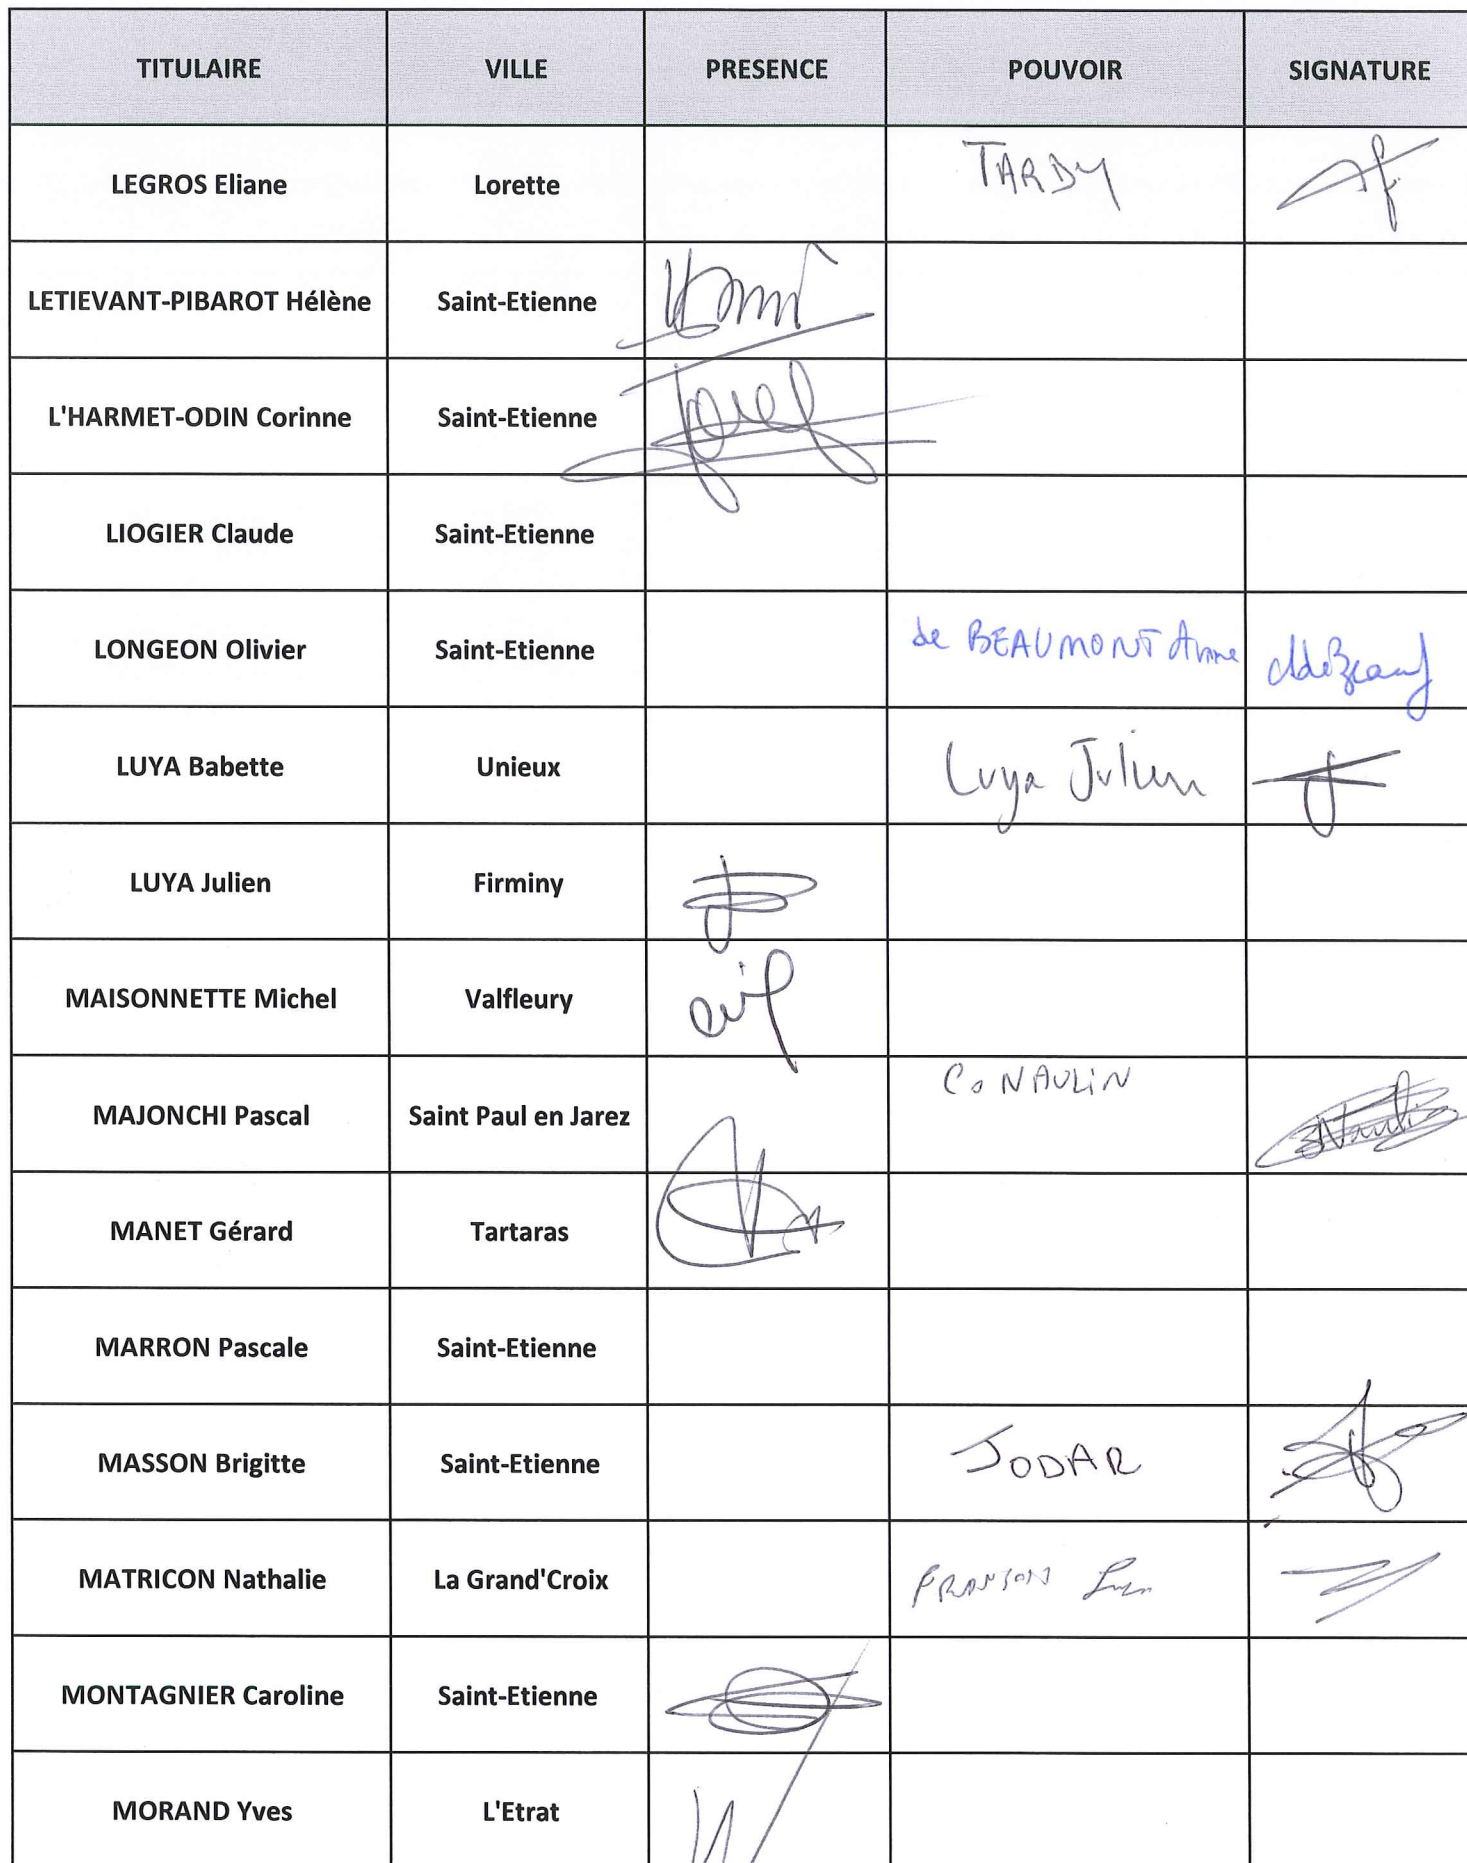 TITULAIRE VILLE PRESENCE POUVOIR SIGNATURE
LEGROS Eliane Lorette TARDY
LETIEVANT-PIBAROT Hélène Saint-Etienne
L'HARMET-ODIN Corinne Saint-Etienne
LIOGIER Claude Saint-Etienne
LONGEON Olivier Saint-Etienne de BEAUMONT Anne
LUYA Babette Unieux Luya Julien
LUYA Julien Firminy
MAISONNETTE Michel Valfleury
MAJONCHI Pascal Saint Paul en Jarez Co NAULIN
MANET Gérard Tartaras
MARRON Pascale Saint-Etienne
MASSON Brigitte Saint-Etienne JODAR
MATRICON Nathalie La Grand'Croix
MONTAGNIER Caroline Saint-Etienne
MORAND Yves L'Etrat